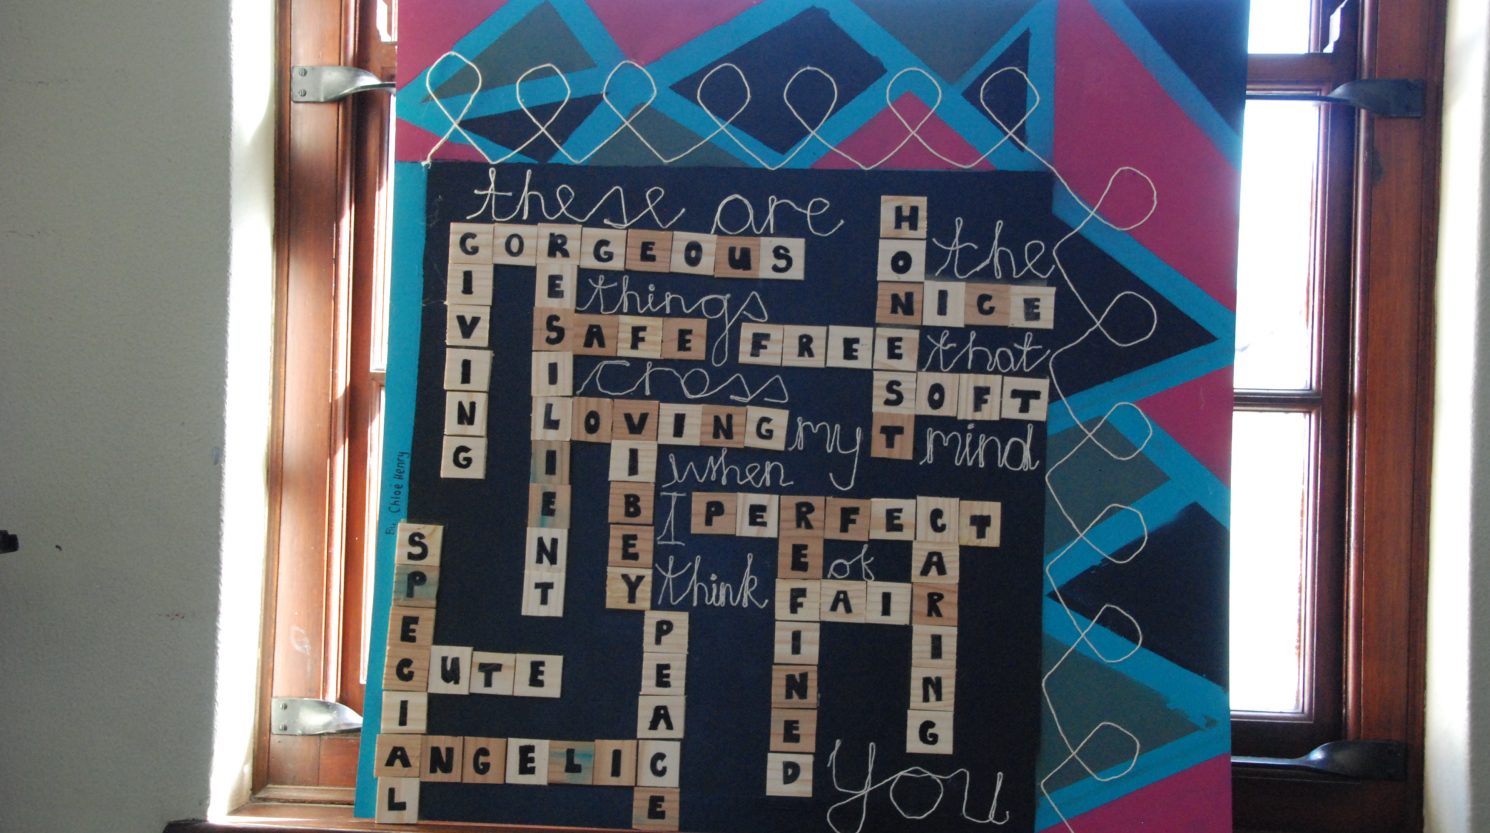 these are
HONEST
GORGEOUS
the
GIVING
RESILIENT
things
NICE
SAFE
FREE
that
cross
SOFT
LOVING
my
mind
VIBEY
when
I
PERFECT
REFINED
CARING
think
of
FAIR
By Chloé Henry
SPECIAL
PEACE
CUTE
ANGELIC
you